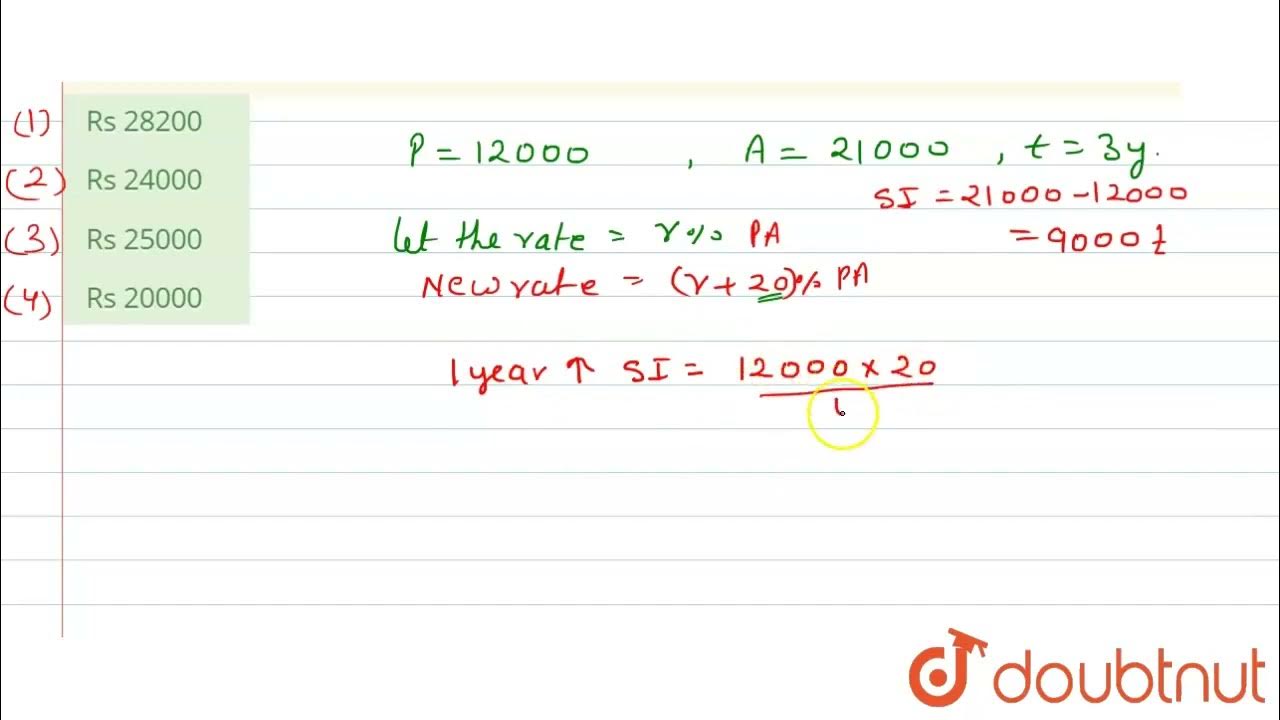 (1) Rs 28200
(2) Rs 24000
(3) Rs 25000
(4) Rs 20000
P = 12000 , A = 21000 , t = 3y.
SI = 21000 - 12000
= 9000
Let the rate = r% PA
New rate = (r + 20)% PA
1 year ↑ SI = 12000 × 20
doubtnut